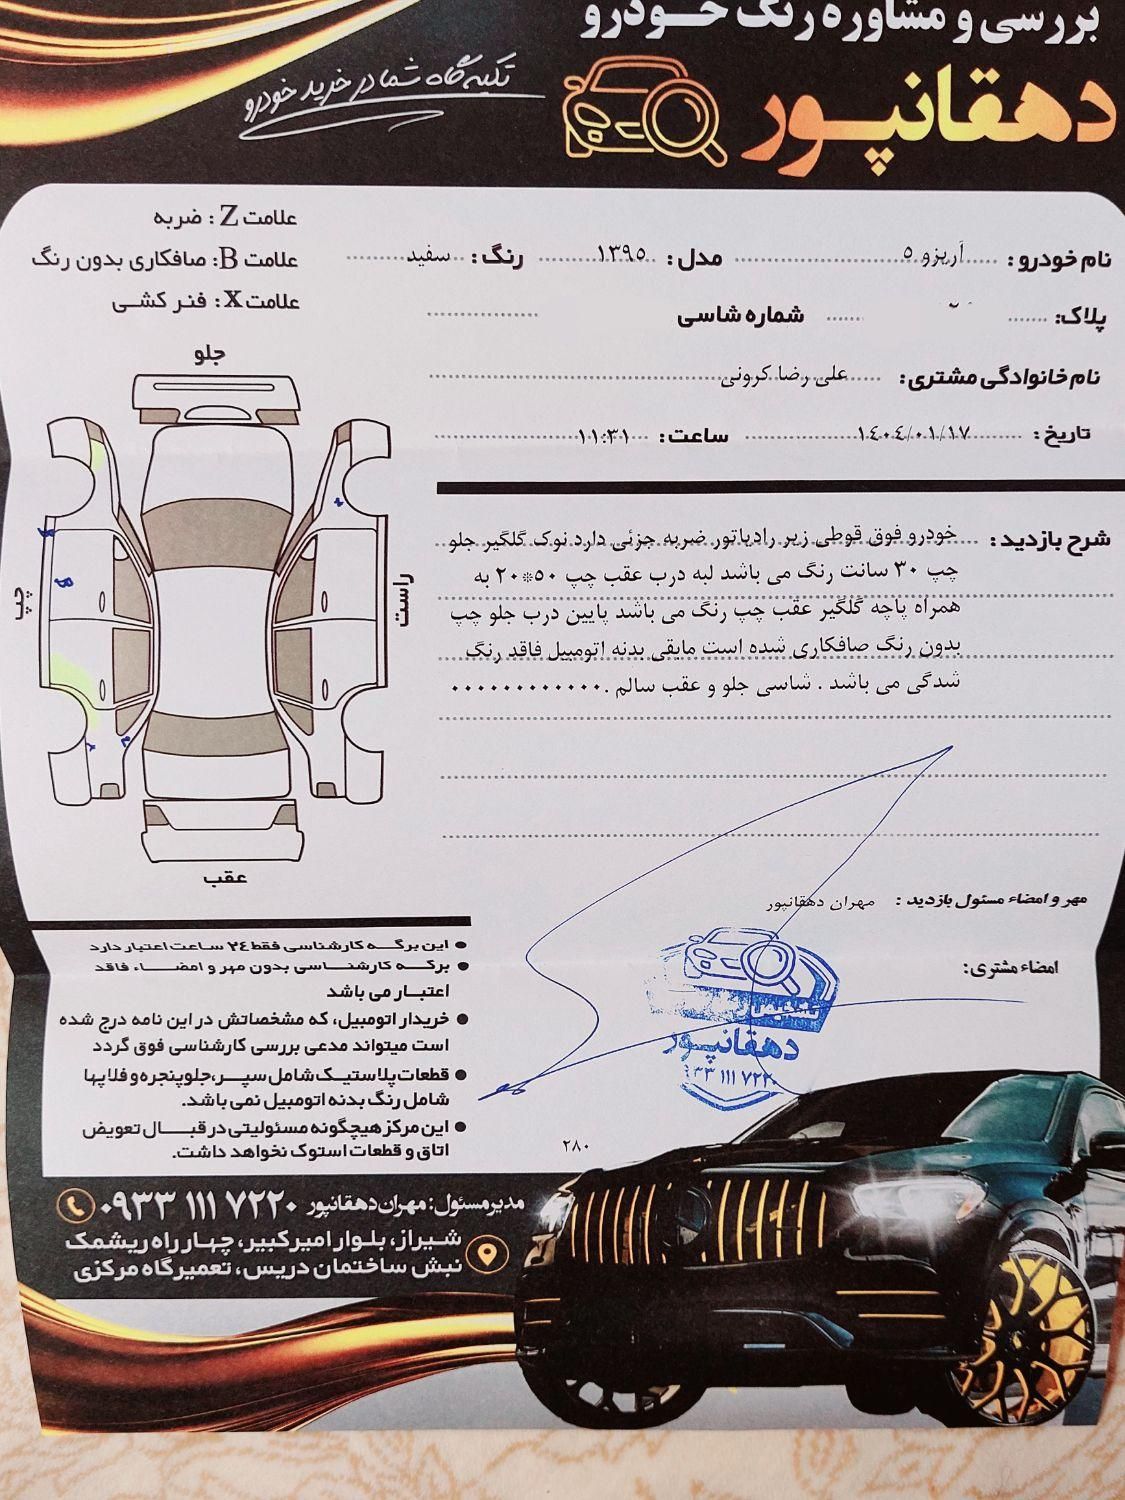 بررسی و مشاوره رنگ خودرو
دهقانپور
تکیه گاه شما در خرید خودرو
علامت Z : ضربه
علامت B: صافکاری بدون رنگ
علامت X : فنر کشی
نام خودرو : آریزو ۵ مدل : ۱۳۹۵ رنگ : سفید
پلاک: شماره شاسی
نام خانوادگی مشتری : علی رضا کرونی
تاریخ : ۱۴۰۴/۰۱/۱۷ ساعت : ۱۱:۳۱
جلو
چپ
راست
عقب
شرح بازدید : خودرو فوق قوطی زیر رادیاتور ضربه جزئی دارد نوک گلگیر جلو
چپ ۳۰ سانت رنگ می باشد لبه درب عقب چپ ۵۰*۲۰ به
همراه پاچه گلگیر عقب چپ رنگ می باشد پایین درب جلو چپ
بدون رنگ صافکاری شده است مابقی بدنه اتومبیل فاقد رنگ
شدگی می باشد . شاسی جلو و عقب سالم .۰۰۰۰۰۰۰۰۰۰۰۰
مهر و امضاء مسئول بازدید : مهران دهقانپور
امضاء مشتری:
دهقانپور
۰۹۳۳ ۱۱۱ ۷۲۲۰
● این برگه کارشناسی فقط ۲۴ ساعت اعتبار دارد
● برگه کارشناسی بدون مهر و امضاء فاقد
اعتبار می باشد
● خریدار اتومبیل، که مشخصاتش در این نامه درج شده
است میتواند مدعی بررسی کارشناسی فوق گردد
● قطعات پلاستیک شامل سپر، جلو پنجره و فلاپها
شامل رنگ بدنه اتومبیل نمی باشد.
● این مرکز هیچگونه مسئولیتی در قبال تعویض
اتاق و قطعات استوک نخواهد داشت.
۲۸۰
مدیر مسئول: مهران دهقانپور ۰۹۳۳ ۱۱۱ ۷۲۲۰
شیراز، بلوار امیرکبیر، چهارراه ریشمک
نبش ساختمان دریس، تعمیرگاه مرکزی